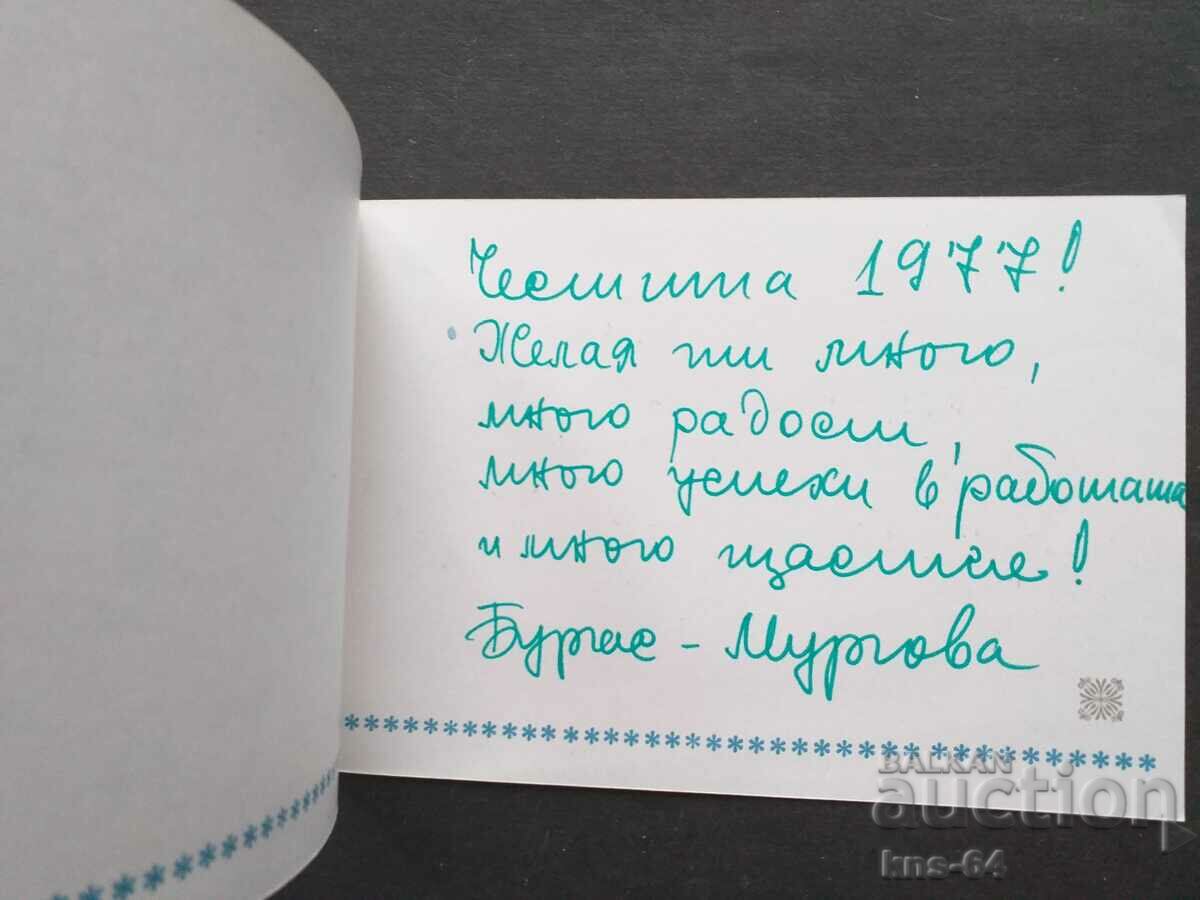 Честита 1977!
Желая ти много,
много радости,
много успехи в работата
и много щастие!
Бургас - Мургова
BALKAN
auction
kns-64